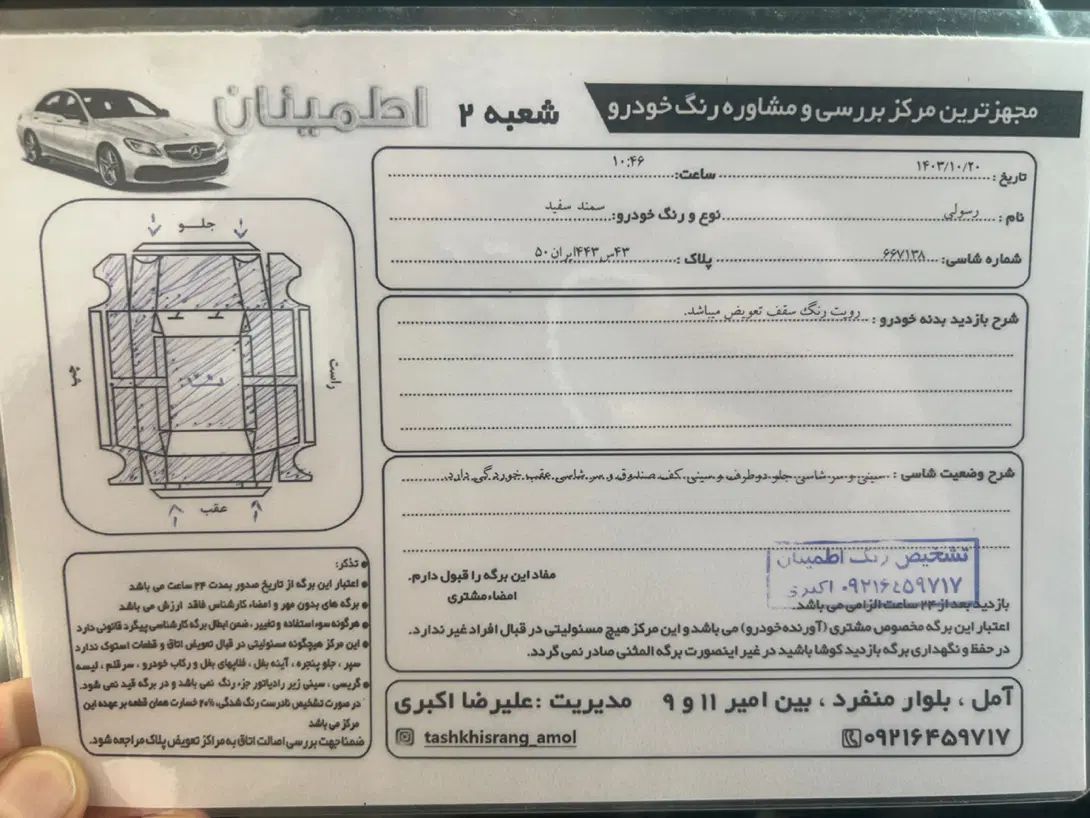 مجهزترین مرکز بررسی و مشاوره رنگ خودرو
شعبه ۲
اطمینان
تاریخ : ۱۴۰۳/۱۰/۲۰ ساعت: ۱۰:۴۶
نام : رسولی نوع و رنگ خودرو: سمند سفید
شماره شاسی: ۶۶۷۱۳۸ پلاک : ۴۳س۴۴۳ایران ۵۰
شرح بازدید بدنه خودرو : رویت رنگ سقف تعویض میباشد.
شرح وضعیت شاسی : سینی و سر شاسی جلو دو طرف و سینی کف صندوق و سر شاسی عقب خوردگی دارد.
تشخیص رنگ اطمینان
۰۹۲۱۶۴۵۹۷۱۷ اکبری
مفاد این برگه را قبول دارم.
امضاء مشتری
بازدید بعد از ۲۴ ساعت الزامی می باشد.
اعتبار این برگه مخصوص مشتری (آورنده خودرو) می باشد و این مرکز هیچ مسئولیتی در قبال افراد غیر ندارد.
در حفظ و نگهداری برگه بازدید کوشا باشید در غیر اینصورت برگه المثنی صادر نمی گردد.
آمل ، بلوار منفرد ، بین امیر ۱۱ و ۹
مدیریت : علیرضا اکبری
۰۹۲۱۶۴۵۹۷۱۷
tashkhisrang_amol
جلو
راست
چپ
عقب
تذکر:
اعتبار این برگه از تاریخ صدور بمدت ۲۴ ساعت می باشد
برگه های بدون مهر و امضاء کارشناس فاقد ارزش می باشد
هرگونه سوء استفاده و تغییر ، ضمن ابطال برگه کارشناسی پیگرد قانونی دارد
این مرکز هیچگونه مسئولیتی در قبال تعویض اتاق و قطعات استوک ندارد
سپر ، جلو پنجره ، آینه بغل ، فلاپهای بغل و رکاب خودرو ، سر قلم ، لیسه
گریسی ، سینی زیر رادیاتور جزء رنگ نمی باشد و در برگه قید نمی شود.
در صورت تشخیص نادرست رنگ شدگی، ۲۰٪ خسارت همان قطعه بر عهده این
مرکز می باشد
ضمنا جهت بررسی اصالت اتاق به مراکز تعویض پلاک مراجعه شود.